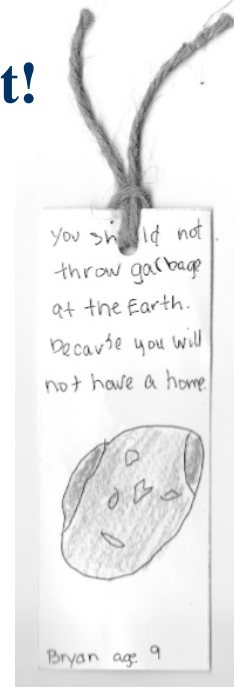 t!
you should not
throw garbage
at the Earth.
because you will
not have a home
Bryan age 9